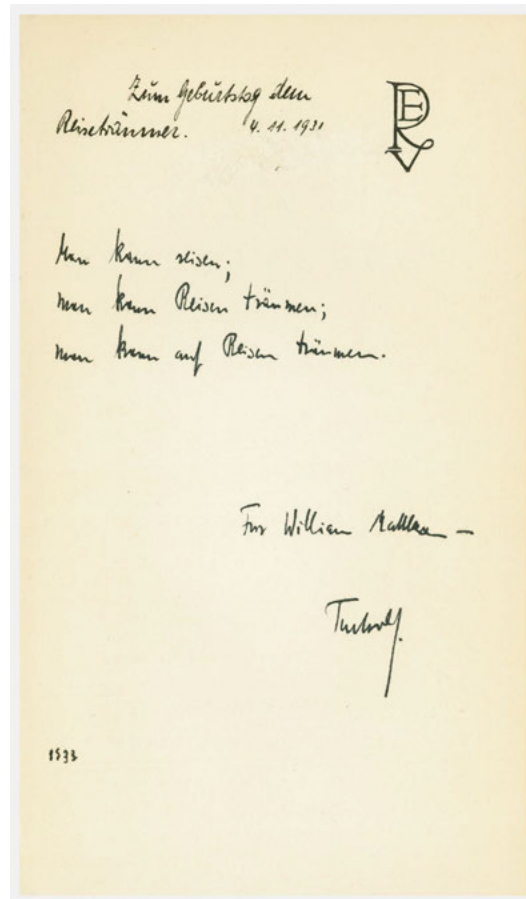 Zum Geburtstag dem
Reiseträumer. 4. 11. 1931
Man kann reisen;
man kann Reisen träumen;
man kann auf Reisen träumen.
Für William
1933